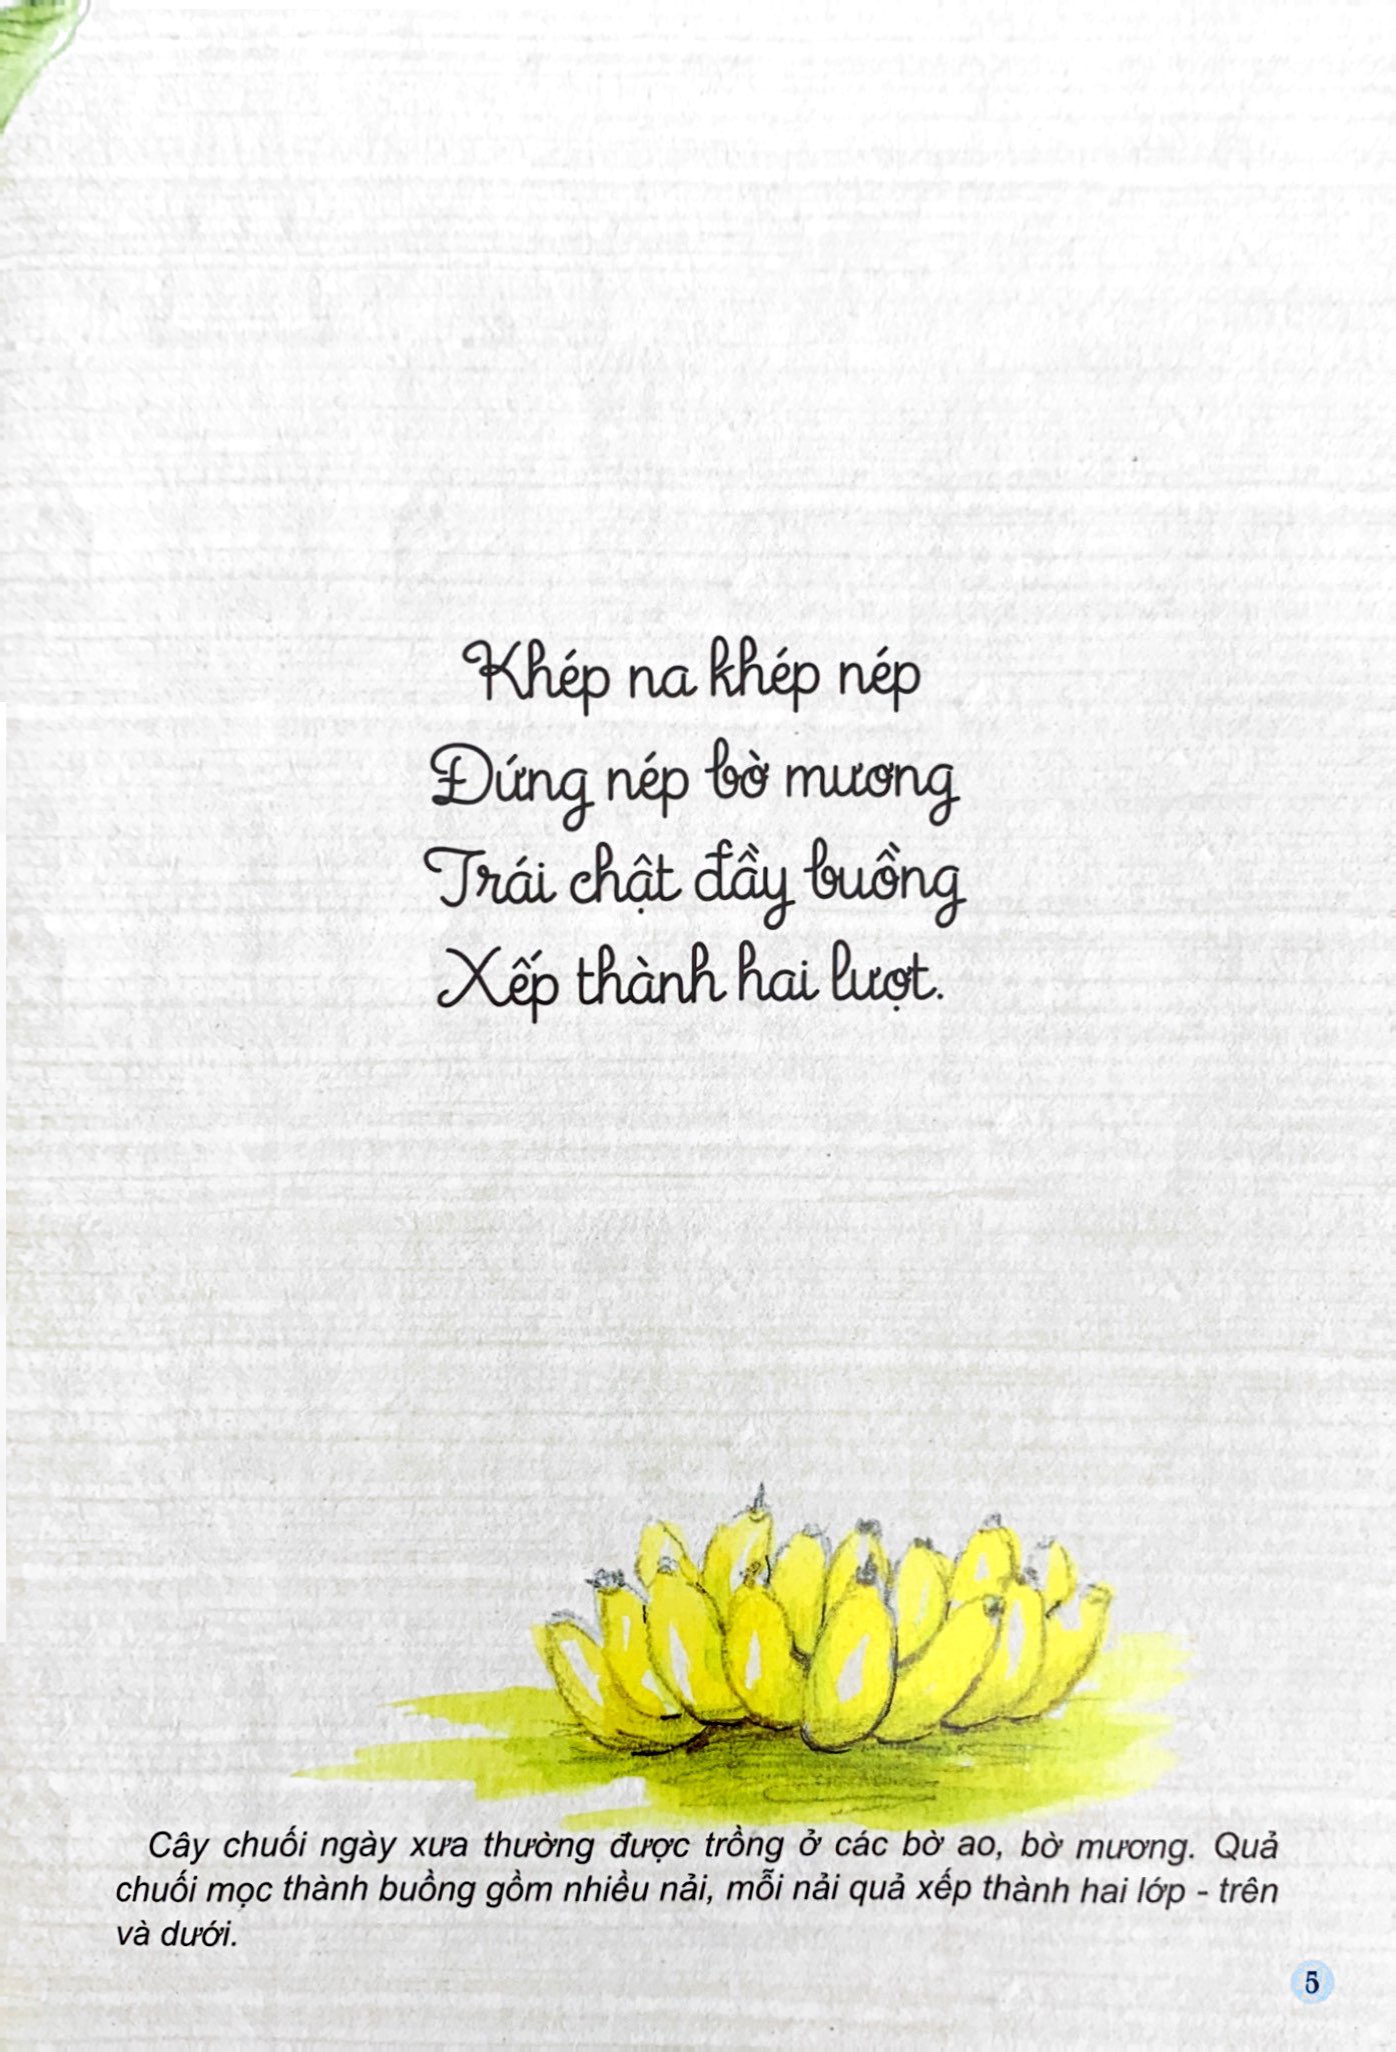 Khép na khép nép
Đứng nép bờ mương
Trái chật đầy buồng
Xếp thành hai lượt.
Cây chuối ngày xưa thường được trồng ở các bờ ao, bờ mương. Quả
chuối mọc thành buồng gồm nhiều nải, mỗi nải quả xếp thành hai lớp - trên
và dưới.
5